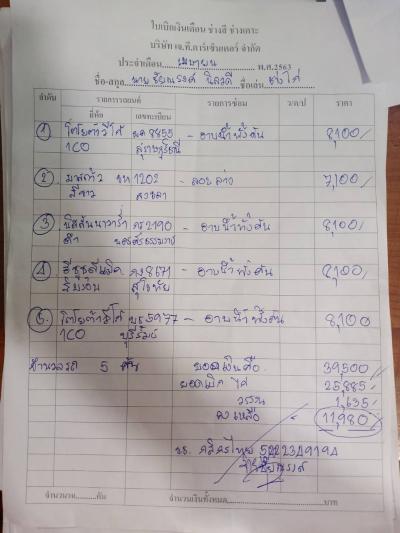 ใบเบิกเงินเดือน ช่างสี ช่างเคาะ
บริษัท เจ.ที.คาร์เซ็นเตอร์ จำกัด
ประจำเดือน เมษายน พ.ศ.2563
ชื่อ-สกุล นาย ชื่อเล่น ช่างไก่
ลำดับ รายการรถยนต์ รายการซ่อม ว/ด/ป ราคา
ยี่ห้อ เลขทะเบียน
1 โตโยต้าวีโก้ 8455 - อาบน้ำทั้งคัน 8,100/
1CO สุราษฎร์ธานี
2 มาสด้า 1202 - 7,100/
สีขาว สงขลา
3 นิสสันนาวาร่า 2190 - อาบน้ำทั้งคัน 8,100/
ดำ นครศรีธรรมราช
4 อีซูซุดีแม็ค 8671 - อาบน้ำทั้งคัน 8,100/
สุโขทัย
5. โตโยต้าวีโก้ 5977 - อาบน้ำทั้งคัน 8,100
1CO บุรีรัมย์
จำนวนรถ 5 คัน ยอดเงินคือ 39,500/
ยอดเบิก 25,885/
1,635/
คงเหลือ 11,980/
ธ. กสิกรไทย 5222349194
จำนวน คัน จำนวนเงินทั้งหมด บาท